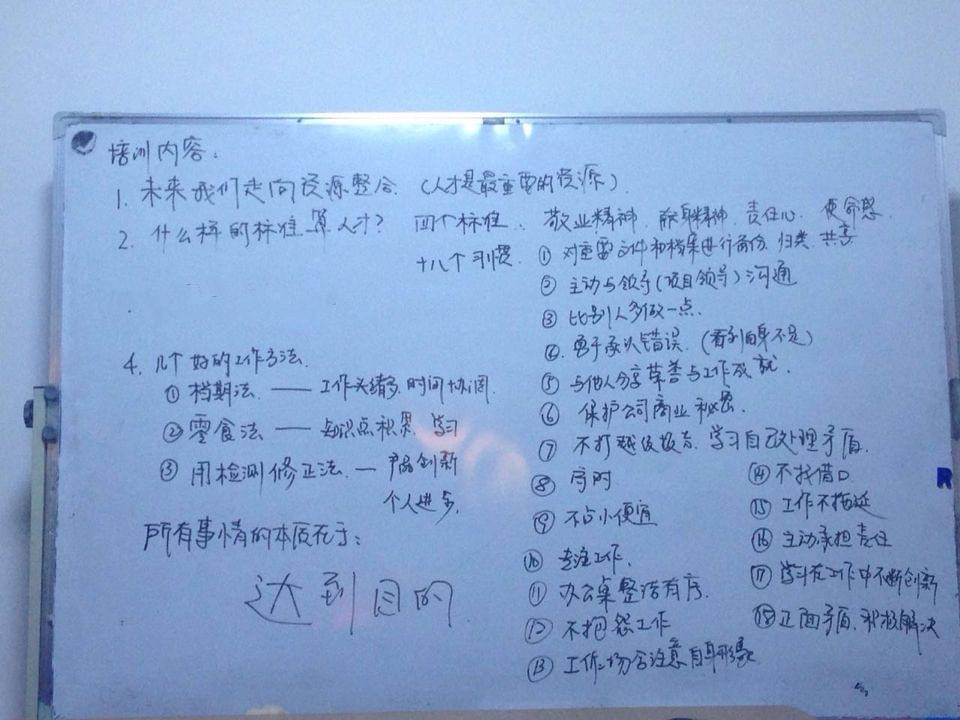 培训内容:
1. 未来我们走向资源整合 (人才是最重要的资源).
2. 什么样的标准算人才? 四个标准: 敬业精神. 献身精神. 责任心. 使命感.
十八个习惯.
① 对重要文件和档案进行备份. 归类. 共享
② 主动与领导(项目领导)沟通
③ 比别人多做一点.
④. 勇于承认错误. (看到自身不足)
⑤ 与他人分享荣誉与工作成就.
⑥ 保护公司商业秘密.
⑦ 不打越级报告. 学习自己处理矛盾
⑧ 守时
⑨ 不占小便宜
⑩ 专注工作.
⑪ 办公桌整洁有序.
⑫ 不抱怨工作
⑬ 工作场合注意自身形象
⑭ 不找借口
⑮ 工作不拖延
⑯ 主动承担责任
⑰ 学习在工作中不断创新
⑱ 正面矛盾. 积极解决
4. 几个好的工作方法.
① 档期法 —— 工作头绪多. 时间协调.
② 零食法 —— 知识点积累. 学习
③ 用检测修正法. — 产品创新
个人进步.
所有事情的本质在于:
达到目的